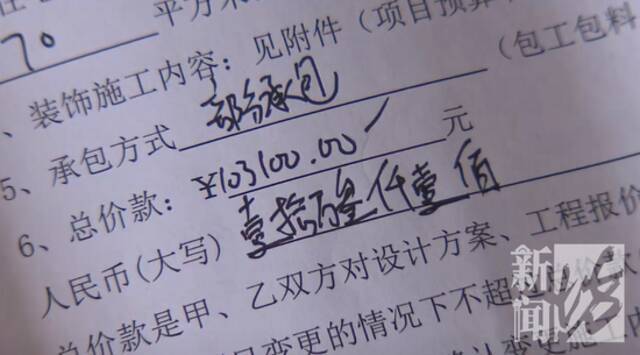 70 平方米
、装饰施工内容：见附件（项目预算
5、承包方式 部分承包 (包工包料
6、总价款：¥103100.00 元
人民币(大写) 壹拾万叁仟壹佰
总价款是甲、乙双方对设计方案、工程报价
变更的情况下不超过
变更施工
新闻